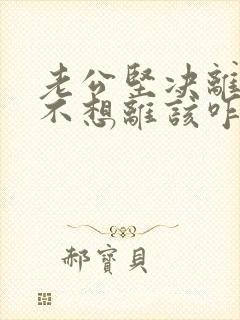 老公堅决離
不想離該咋
郝寶貝